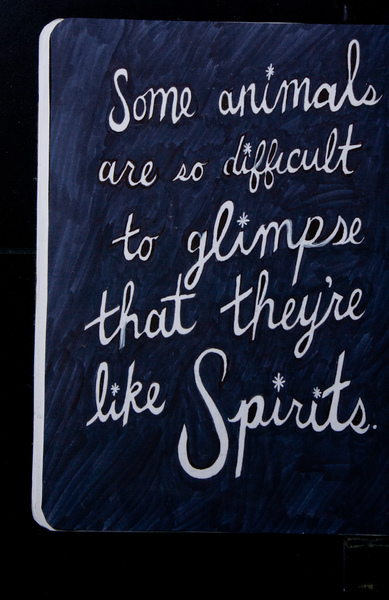 Some animals
are so difficult
to glimpse
that they're
like Spirits.